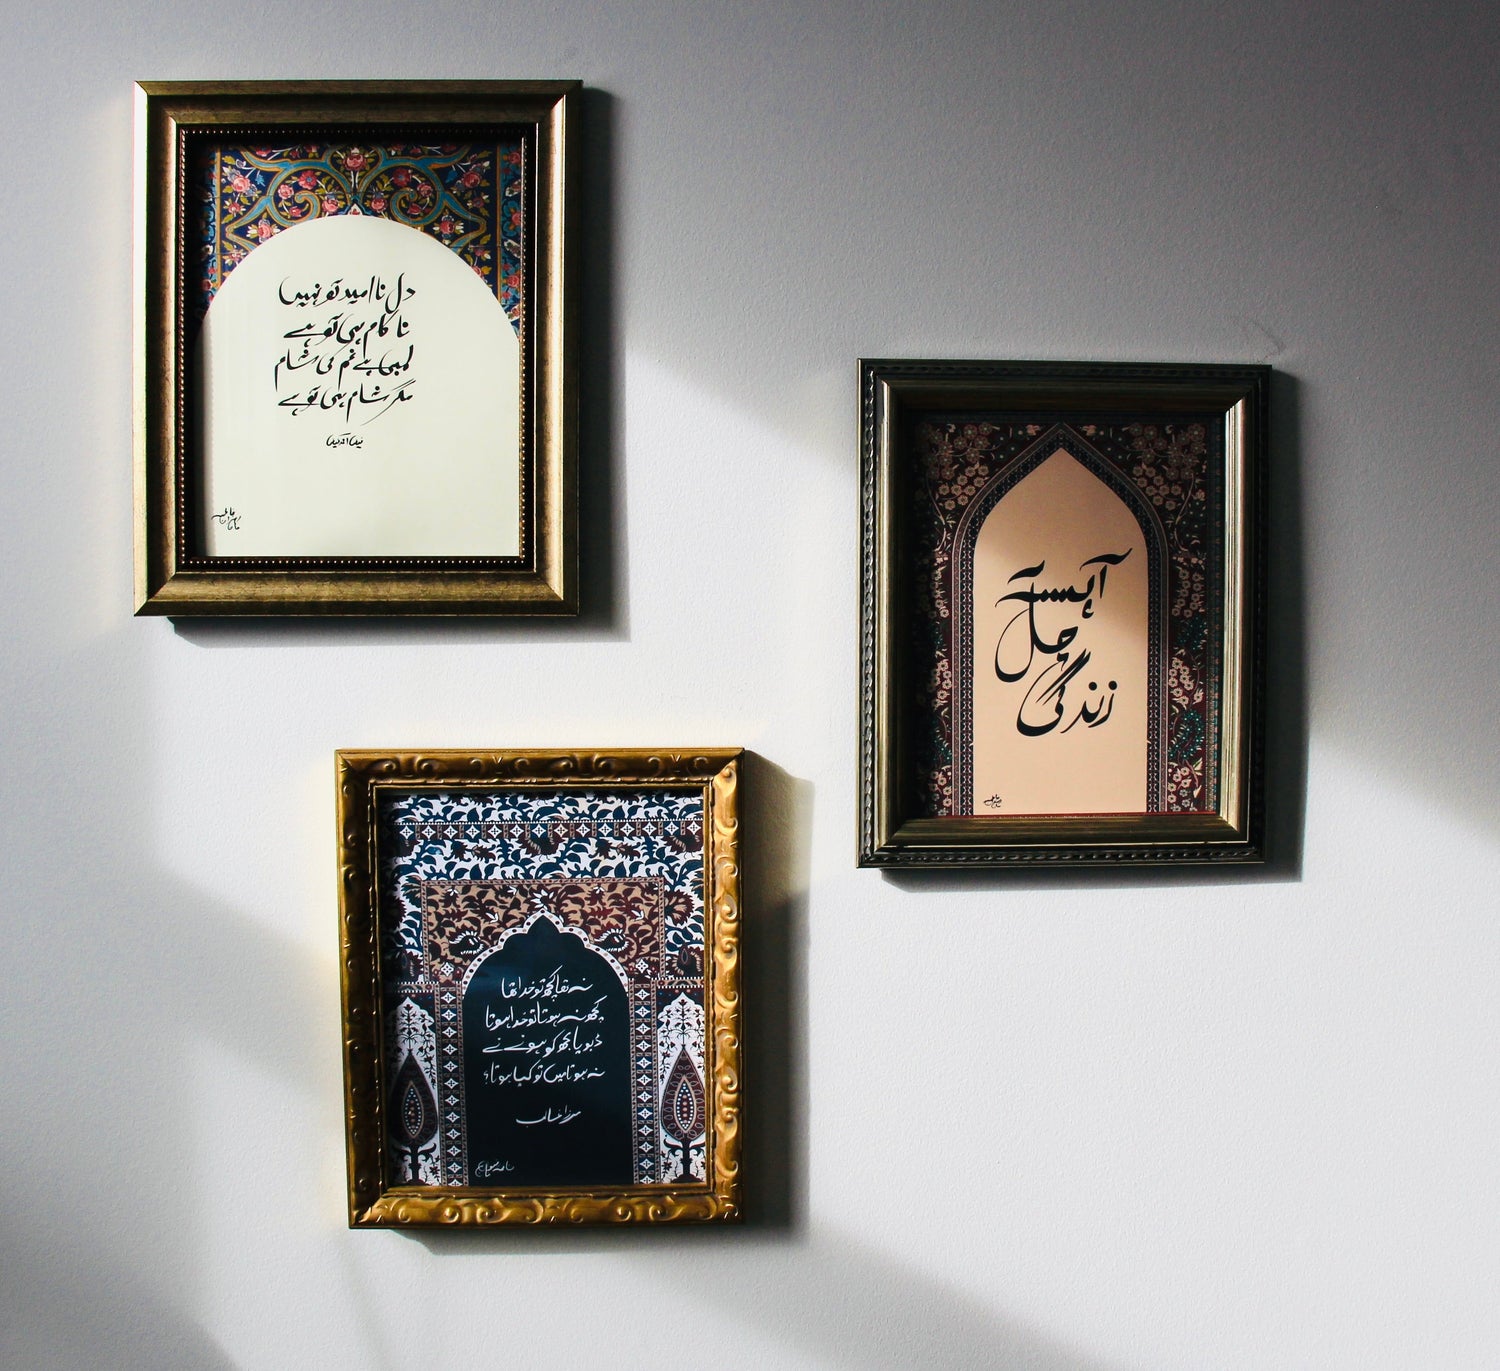 دل ناامید تو نہیں
ناکام ہی تو ہے
لمبی ہے غم کی شام
مگر شام ہی تو ہے
فیض احمد فیض
آہستہ
چل
زندگی
نہ تھا کچھ تو خدا تھا
کچھ نہ ہوتا تو خدا ہوتا
ڈبویا مجھ کو ہونے نے
نہ ہوتا میں تو کیا ہوتا؟
مرزا غالب